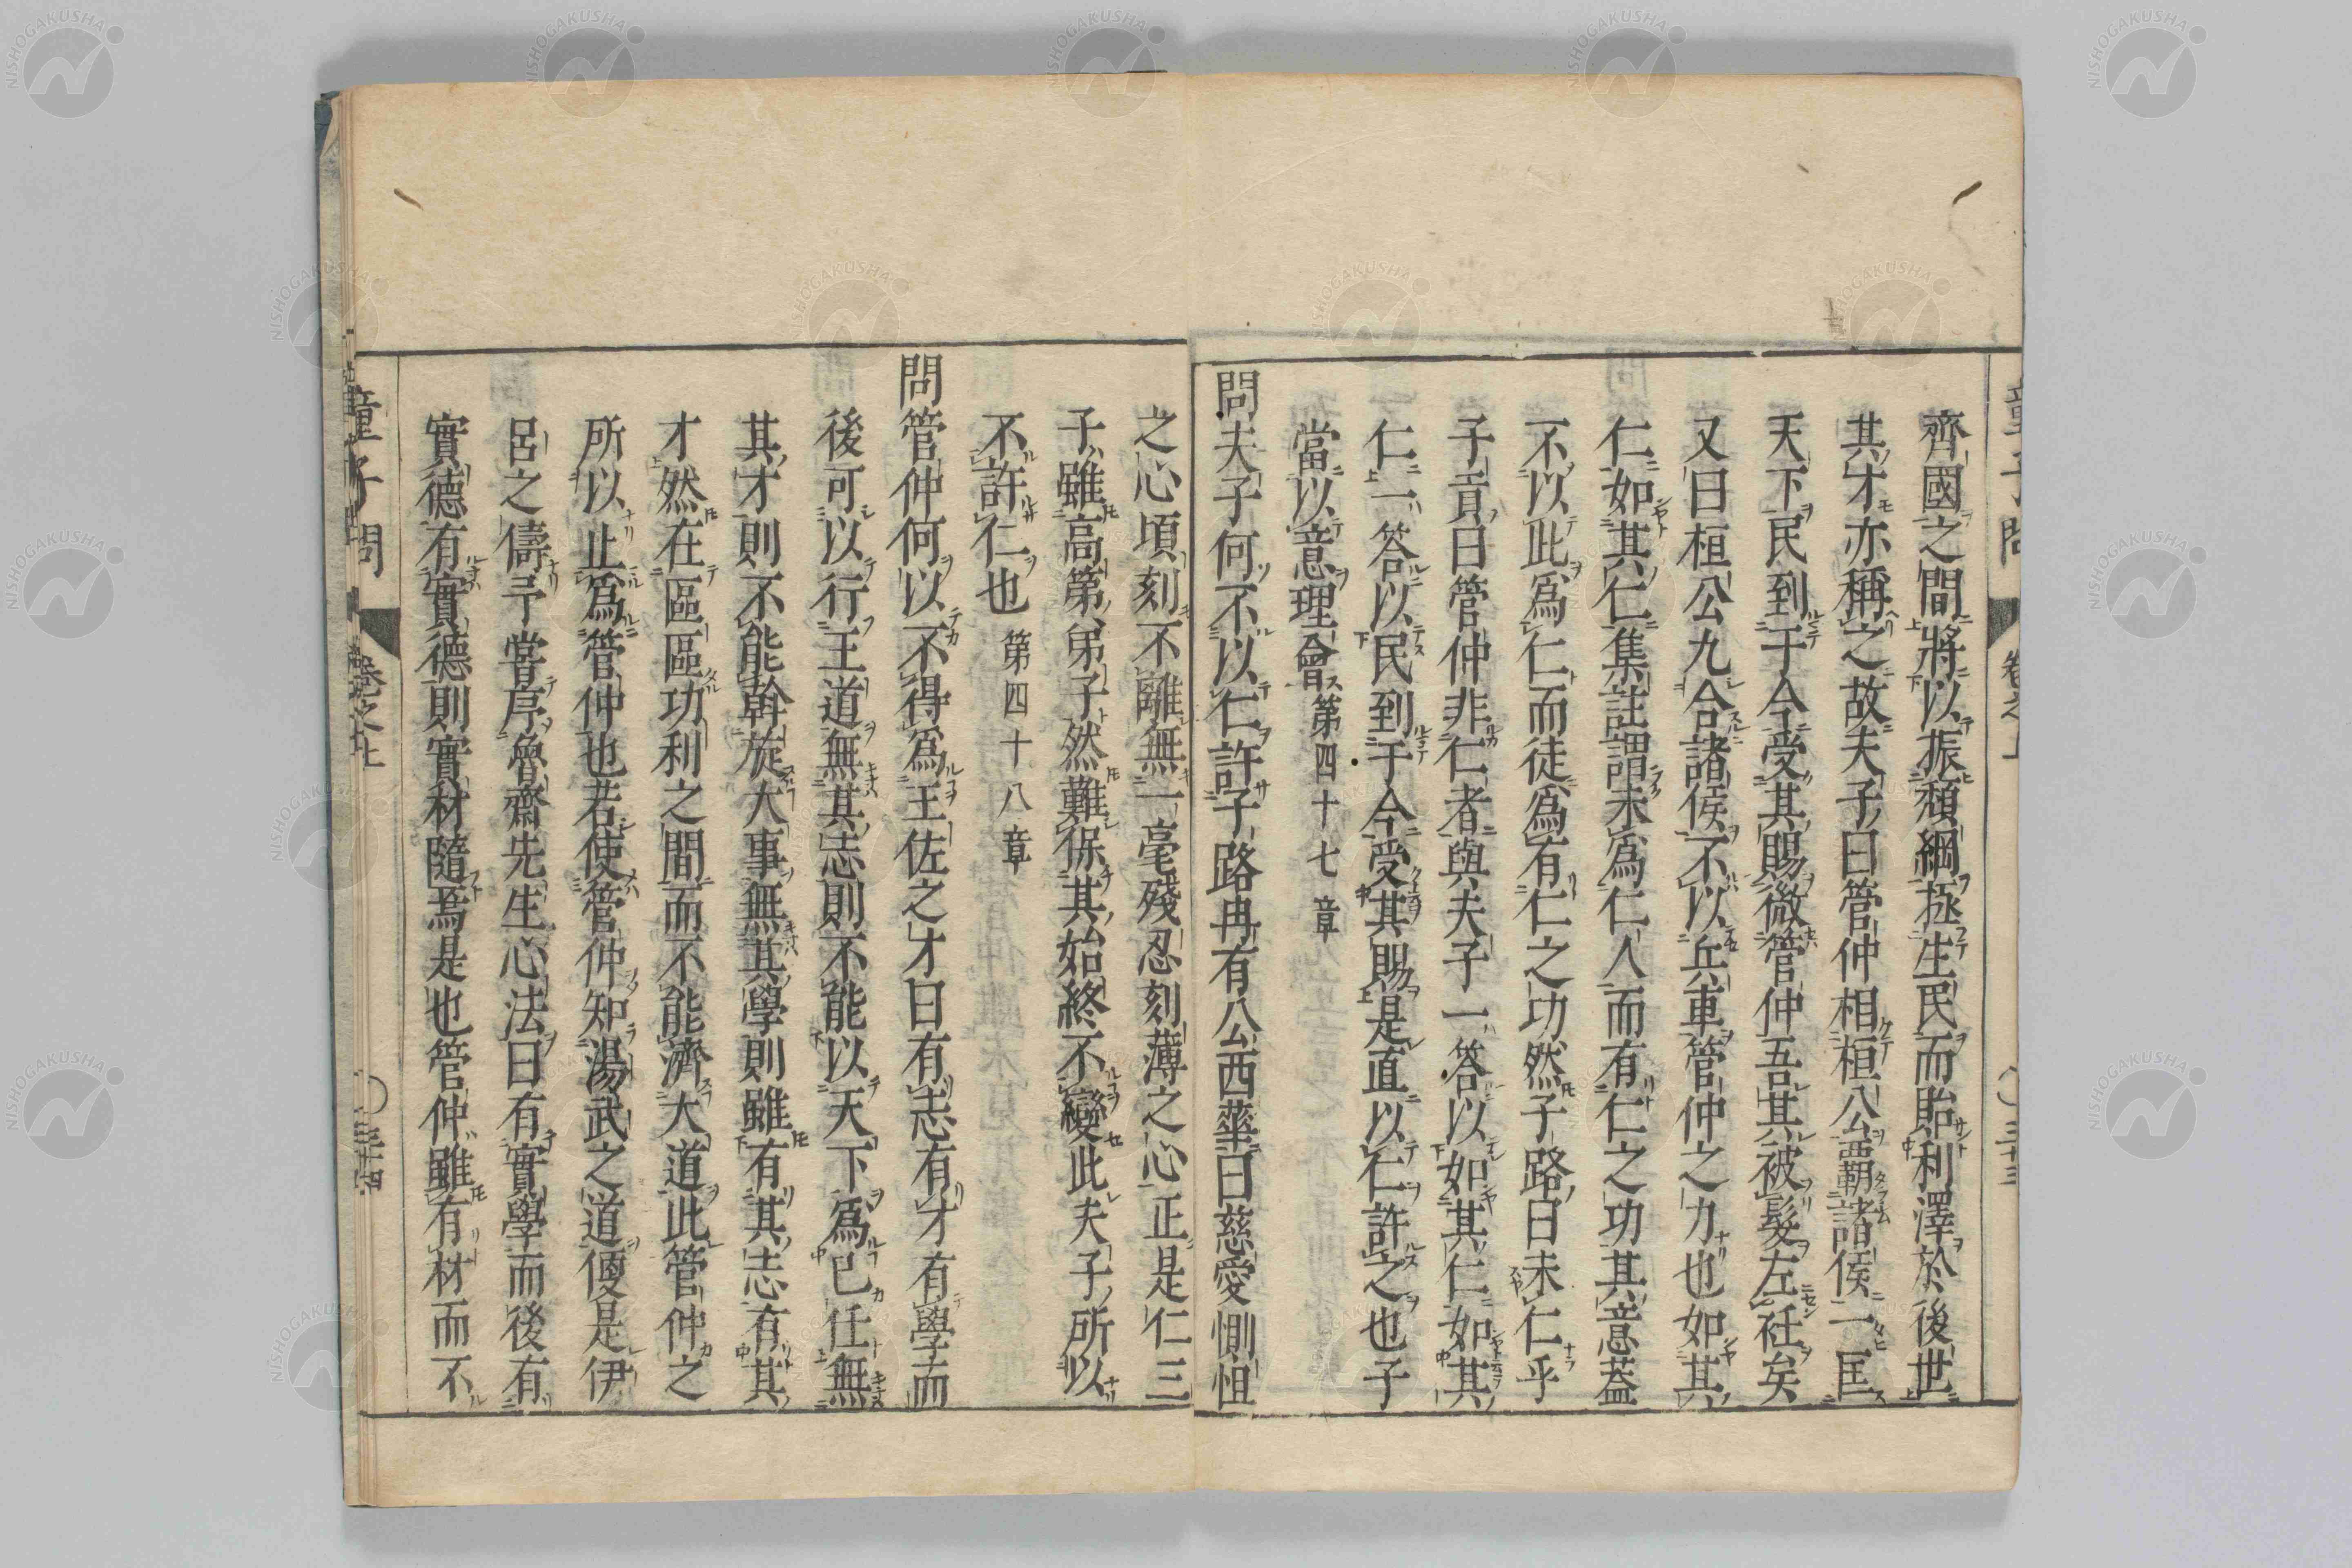 齊國之間將以振頽綱拯生民而貽利澤於後世
其才亦稱之故夫子曰管仲相桓公霸諸侯一匡
天下民到于今受其賜微管仲吾其被髮左衽矣
又曰桓公九合諸侯不以兵車管仲之力也如其
仁如其仁集註謂未爲仁人而有仁之功其意蓋
不以此爲仁而徒爲有仁之功然子路曰未仁乎
子貢曰管仲非仁者與夫子一答以如其仁如其
仁一答以民到于今受其賜是直以仁許之也子
當以意理會第四十七章
問夫子何不以仁許子路冉有公西華曰慈愛惻怛
之心頃刻不離無一毫殘忍刻薄之心正是仁三
子雖高第弟子然難保其始終不變此夫子所以
不許仁也第四十八章
問管仲何以不得爲王佐之才曰有志有才有學而
後可以行王道無其志則不能以天下爲己任無
其才則不能幹旋大事無其學則雖有其志有其
才然在區區功利之間而不能濟大道此管仲之
所以止爲管仲也若使管仲知湯武之道便是伊
呂之儔予嘗序魯齋先生心法曰有實學而後有
實德有實德則實材隨焉是也管仲雖有材而不
童子問
卷之上
三十四